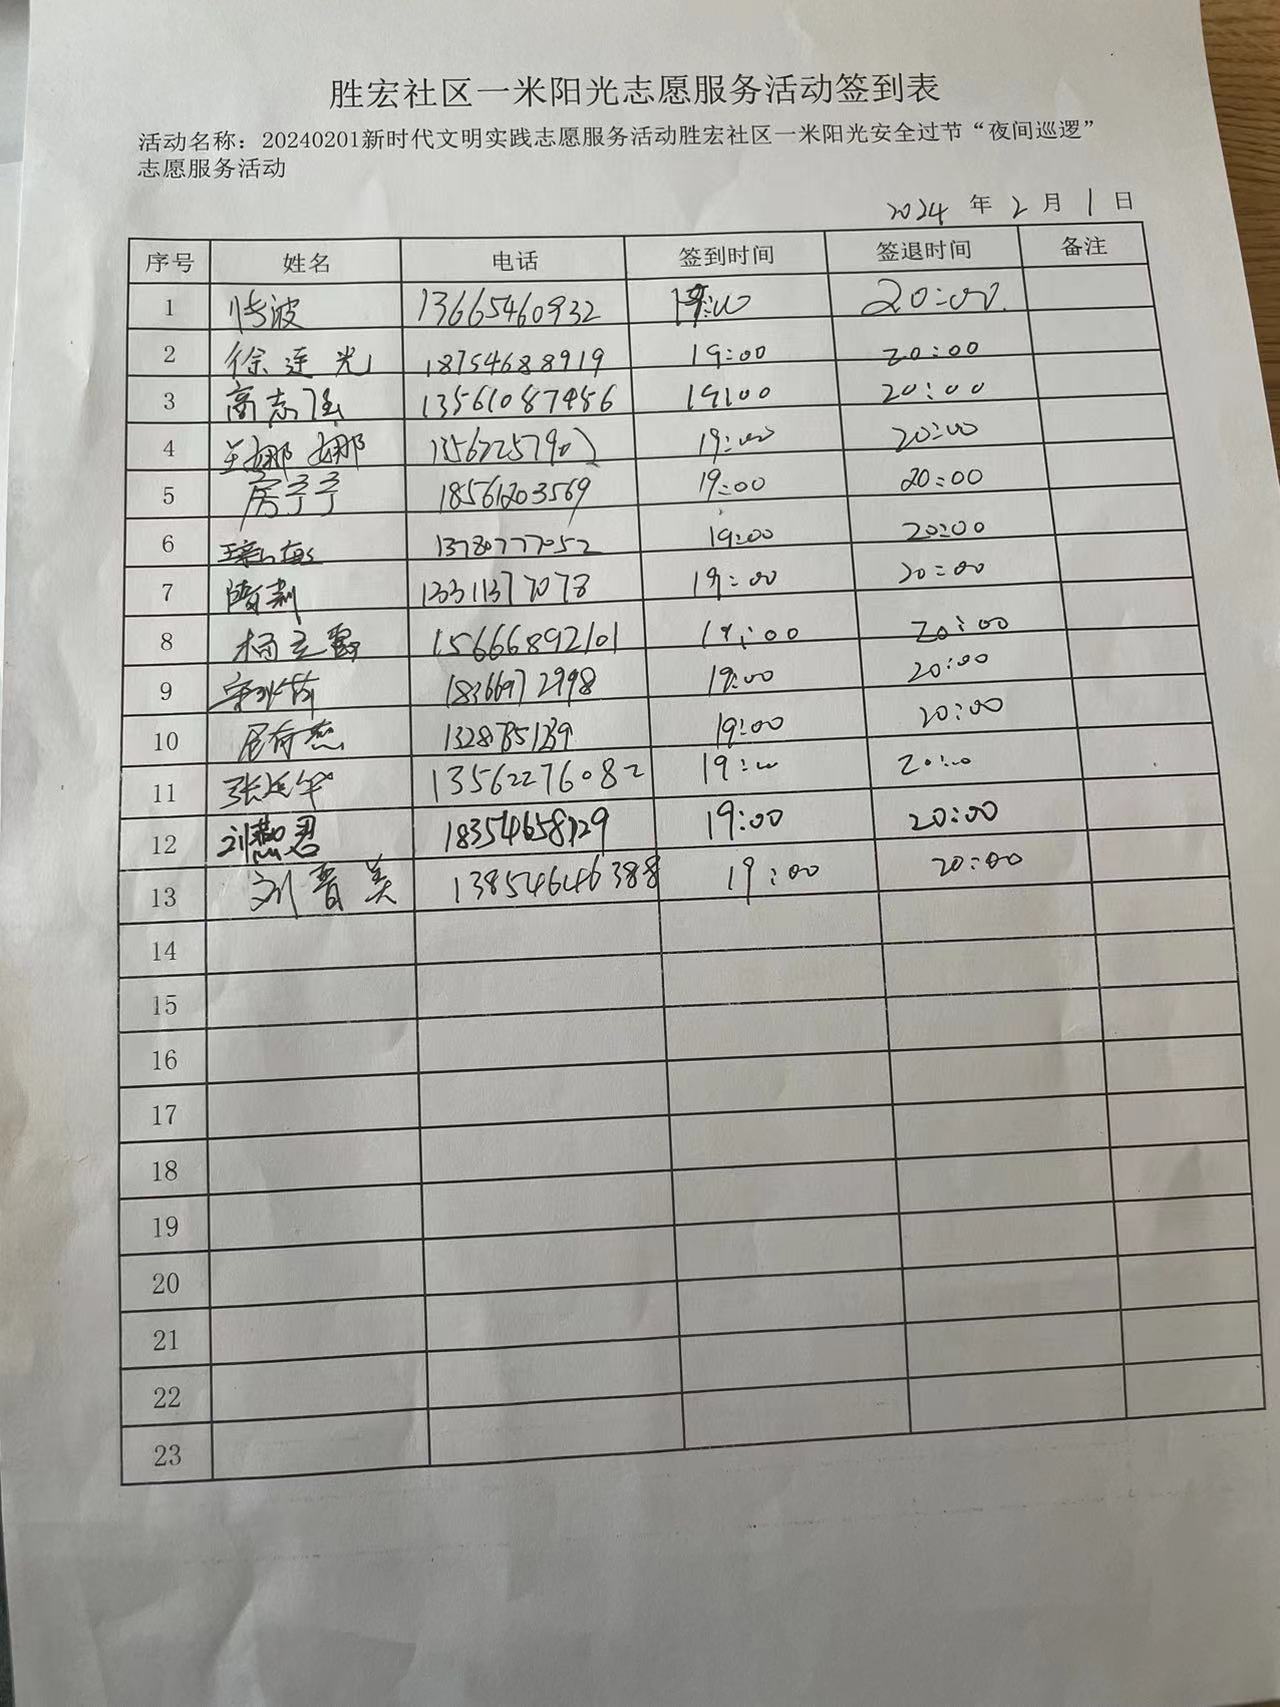 胜宏社区一米阳光志愿服务活动签到表
活动名称：20240201新时代文明实践志愿服务活动胜宏社区一米阳光安全过节“夜间巡逻”
志愿服务活动
2024 年 2 月 1 日
序号 姓名 电话 签到时间 签退时间 备注
1 波 13665460932 19:00 20:00
2 徐连光 18754688919 19:00 20:00
3 高志强 13561087486 19:00 20:00
4 王娜娜 15562257907 19:00 20:00
5 房宁宁 18561203569 19:00 20:00
6 13780777052 19:00 20:00
7 陵莉 13311377078 19:00 20:00
8 杨立霞 15666892101 19:00 20:00
9 18366972998 19:00 20:00
10 19:00 20:00
11 张延华 13562276082 19:00 20:00
12 刘燕君 18354658729 19:00 20:00
13 刘晋美 13854646388 19:00 20:00
14
15
16
17
18
19
20
21
22
23